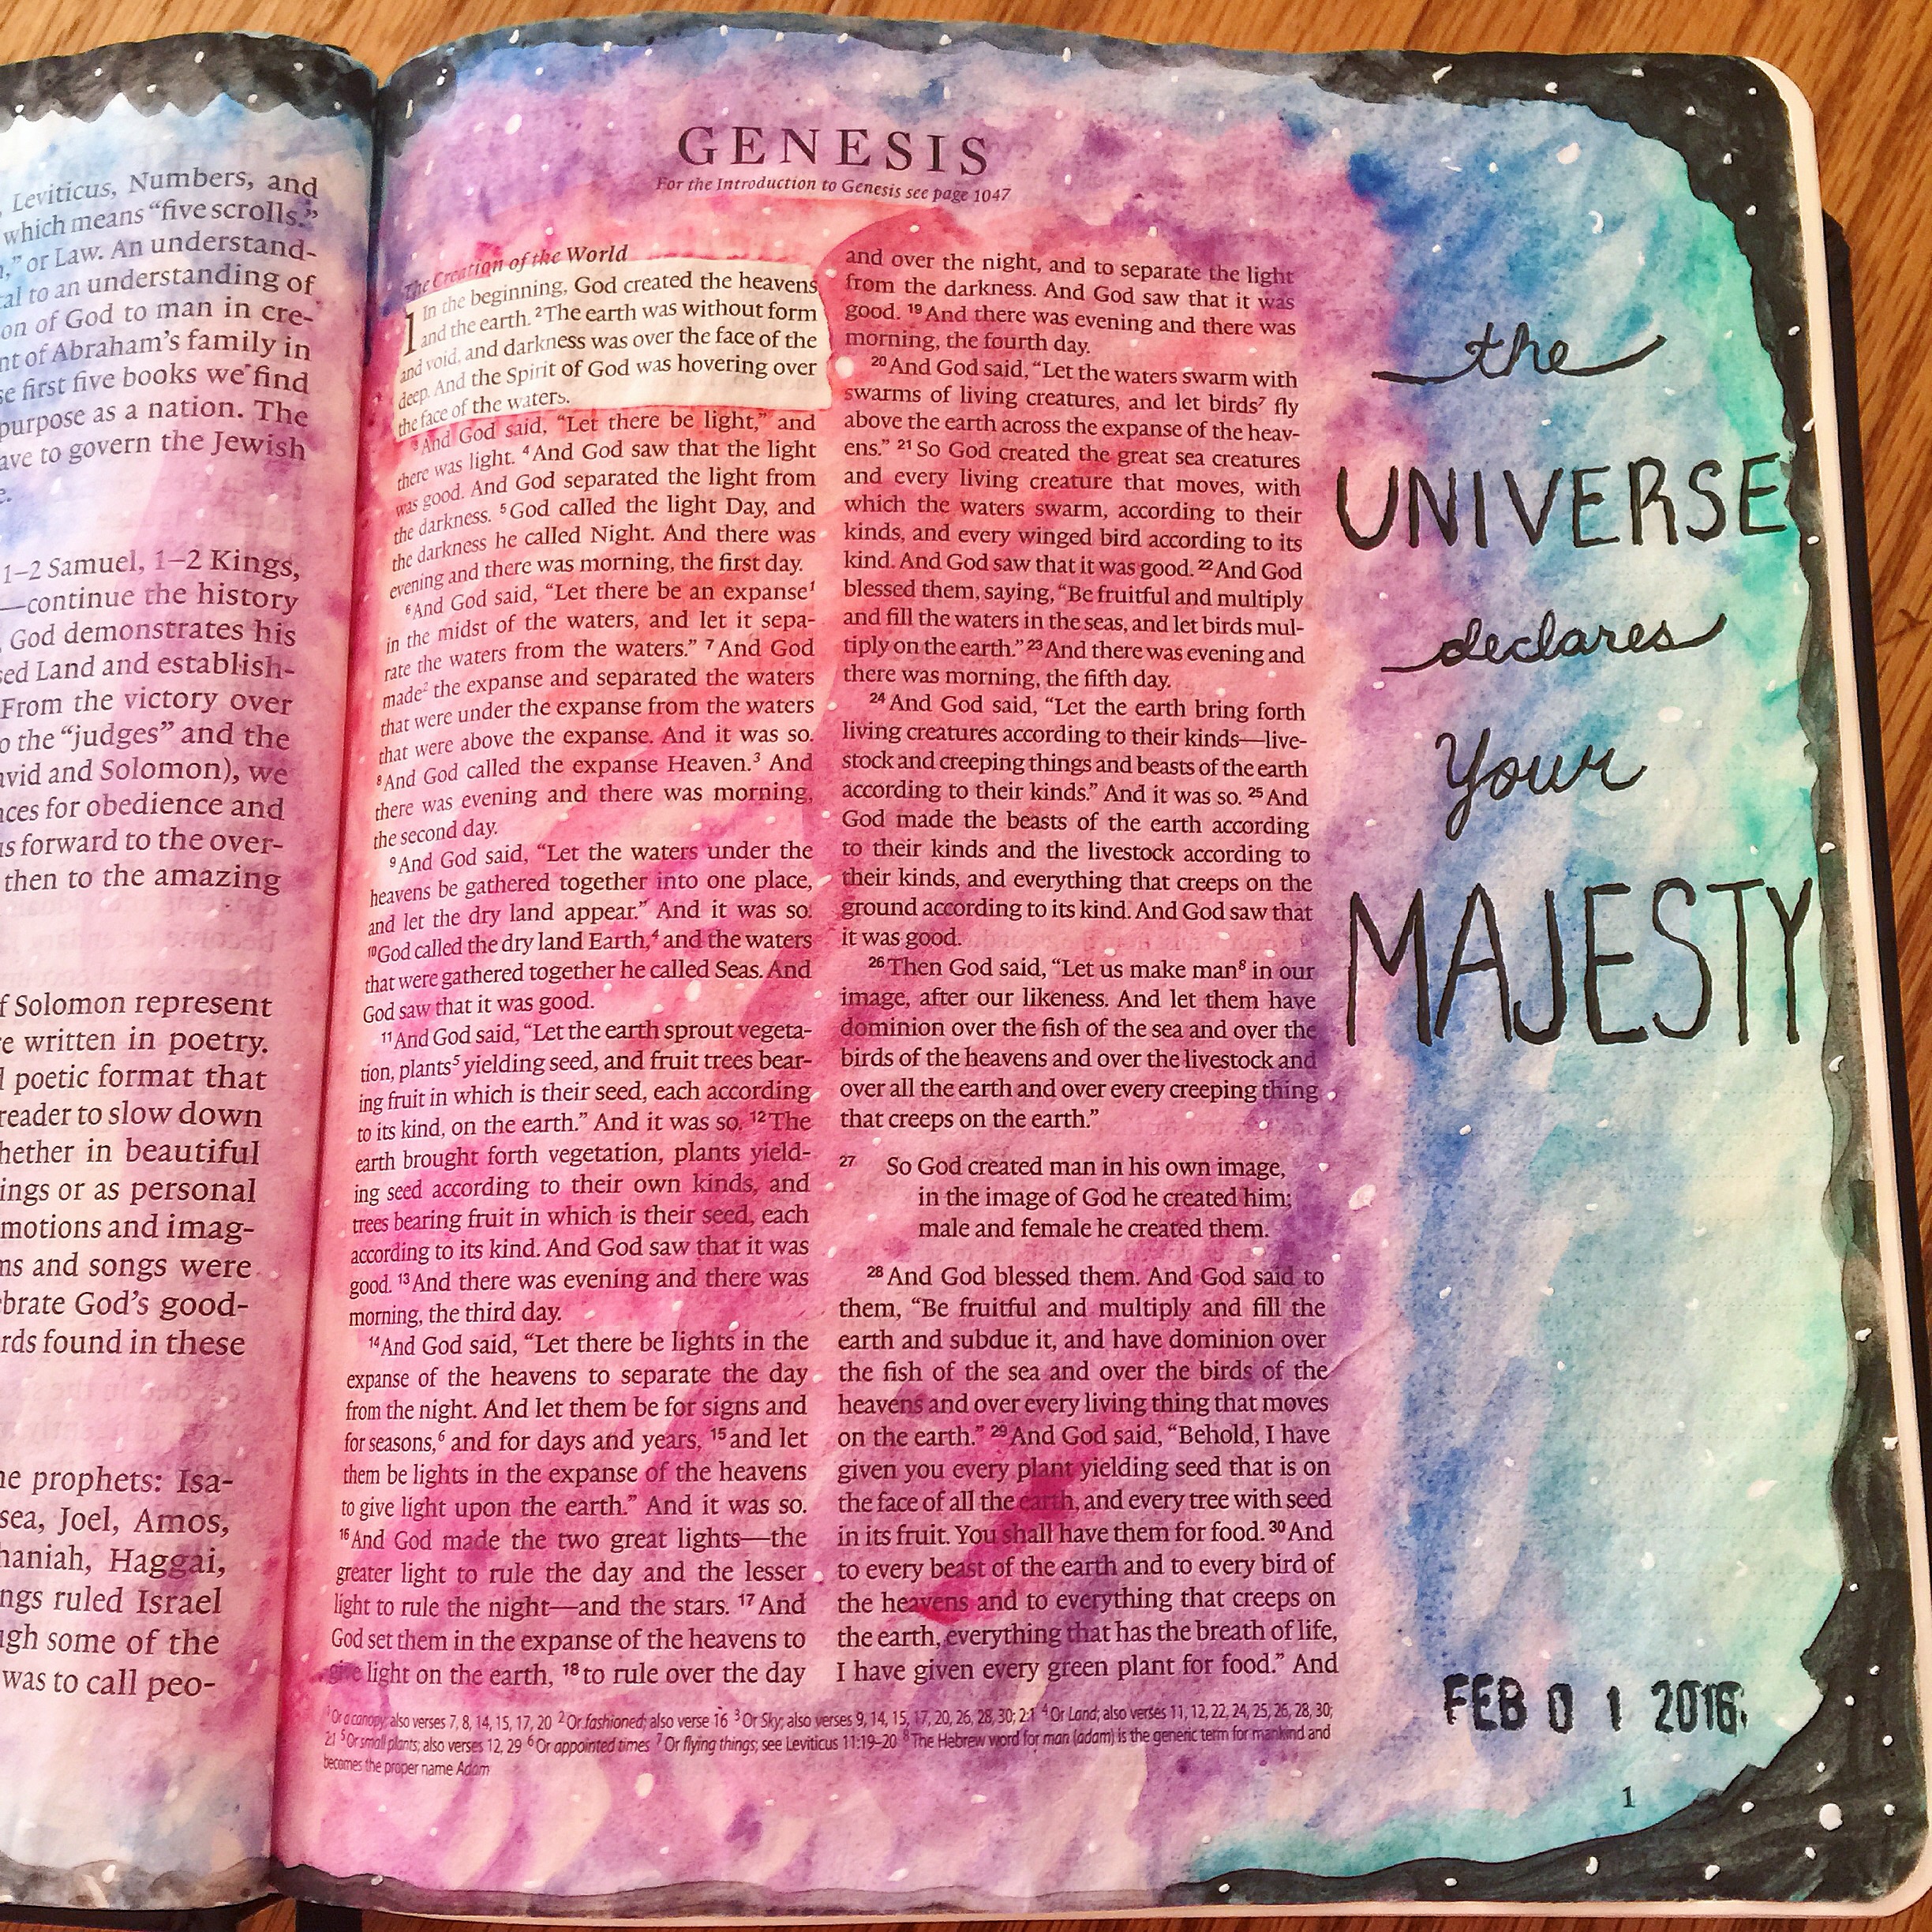 Leviticus, Numbers, and
which means “five scrolls.”
or Law. An understand-
to an understanding of
of God to man in cre-
of Abraham’s family in
first five books we find
purpose as a nation. The
to govern the Jewish
1–2 Samuel, 1–2 Kings,
—continue the history
God demonstrates his
Land and establish-
From the victory over
the “judges” and the
and Solomon), we
for obedience and
forward to the over-
then to the amazing
Solomon represent
written in poetry.
poetic format that
reader to slow down
in beautiful
or as personal
and imag-
and songs were
God’s good-
found in these
prophets: Isa-
Joel, Amos,
Haggai,
ruled Israel
some of the
was to call peo-
GENESIS
For the Introduction to Genesis see page 1047
The Creation of the World
1 In the beginning, God created the heavens
and the earth. ²The earth was without form
and void, and darkness was over the face of the
deep. And the Spirit of God was hovering over
the face of the waters.
³And God said, “Let there be light,” and
there was light. ⁴And God saw that the light
was good. And God separated the light from
the darkness. ⁵God called the light Day, and
the darkness he called Night. And there was
evening and there was morning, the first day.
⁶And God said, “Let there be an expanse¹
in the midst of the waters, and let it sepa-
rate the waters from the waters.” ⁷And God
made² the expanse and separated the waters
that were under the expanse from the waters
that were above the expanse. And it was so.
⁸And God called the expanse Heaven.³ And
there was evening and there was morning,
the second day.
⁹And God said, “Let the waters under the
heavens be gathered together into one place,
and let the dry land appear.” And it was so.
¹⁰God called the dry land Earth,⁴ and the waters
that were gathered together he called Seas. And
God saw that it was good.
¹¹And God said, “Let the earth sprout vegeta-
tion, plants⁵ yielding seed, and fruit trees bear-
ing fruit in which is their seed, each according
to its kind, on the earth.” And it was so. ¹²The
earth brought forth vegetation, plants yield-
ing seed according to their own kinds, and
trees bearing fruit in which is their seed, each
according to its kind. And God saw that it was
good. ¹³And there was evening and there was
morning, the third day.
¹⁴And God said, “Let there be lights in the
expanse of the heavens to separate the day
from the night. And let them be for signs and
for seasons,⁶ and for days and years, ¹⁵and let
them be lights in the expanse of the heavens
to give light upon the earth.” And it was so.
¹⁶And God made the two great lights—the
greater light to rule the day and the lesser
light to rule the night—and the stars. ¹⁷And
God set them in the expanse of the heavens to
give light on the earth, ¹⁸to rule over the day
and over the night, and to separate the light
from the darkness. And God saw that it was
good. ¹⁹And there was evening and there was
morning, the fourth day.
²⁰And God said, “Let the waters swarm with
swarms of living creatures, and let birds⁷ fly
above the earth across the expanse of the heav-
ens.” ²¹So God created the great sea creatures
and every living creature that moves, with
which the waters swarm, according to their
kinds, and every winged bird according to its
kind. And God saw that it was good. ²²And God
blessed them, saying, “Be fruitful and multiply
and fill the waters in the seas, and let birds mul-
tiply on the earth.” ²³And there was evening and
there was morning, the fifth day.
²⁴And God said, “Let the earth bring forth
living creatures according to their kinds—live-
stock and creeping things and beasts of the earth
according to their kinds.” And it was so. ²⁵And
God made the beasts of the earth according
to their kinds and the livestock according to
their kinds, and everything that creeps on the
ground according to its kind. And God saw that
it was good.
²⁶Then God said, “Let us make man⁸ in our
image, after our likeness. And let them have
dominion over the fish of the sea and over the
birds of the heavens and over the livestock and
over all the earth and over every creeping thing
that creeps on the earth.”
²⁷ So God created man in his own image,
in the image of God he created him;
male and female he created them.
²⁸And God blessed them. And God said to
them, “Be fruitful and multiply and fill the
earth and subdue it, and have dominion over
the fish of the sea and over the birds of the
heavens and over every living thing that moves
on the earth.” ²⁹And God said, “Behold, I have
given you every plant yielding seed that is on
the face of all the earth, and every tree with seed
in its fruit. You shall have them for food. ³⁰And
to every beast of the earth and to every bird of
the heavens and to everything that creeps on
the earth, everything that has the breath of life,
I have given every green plant for food.” And
¹Or a canopy; also verses 7, 8, 14, 15, 17, 20 ²Or fashioned; also verse 16 ³Or Sky; also verses 9, 14, 15, 17, 20, 26, 28, 30; 2:1 ⁴Or Land; also verses 11, 12, 22, 24, 25, 26, 28, 30;
2:1 ⁵Or small plants; also verses 12, 29 ⁶Or appointed times ⁷Or flying things; see Leviticus 11:19–20 ⁸The Hebrew word for man (adam) is the generic term for mankind and
becomes the proper name Adam
the
UNIVERSE
declares
Your
MAJESTY
FEB 01 2016
1